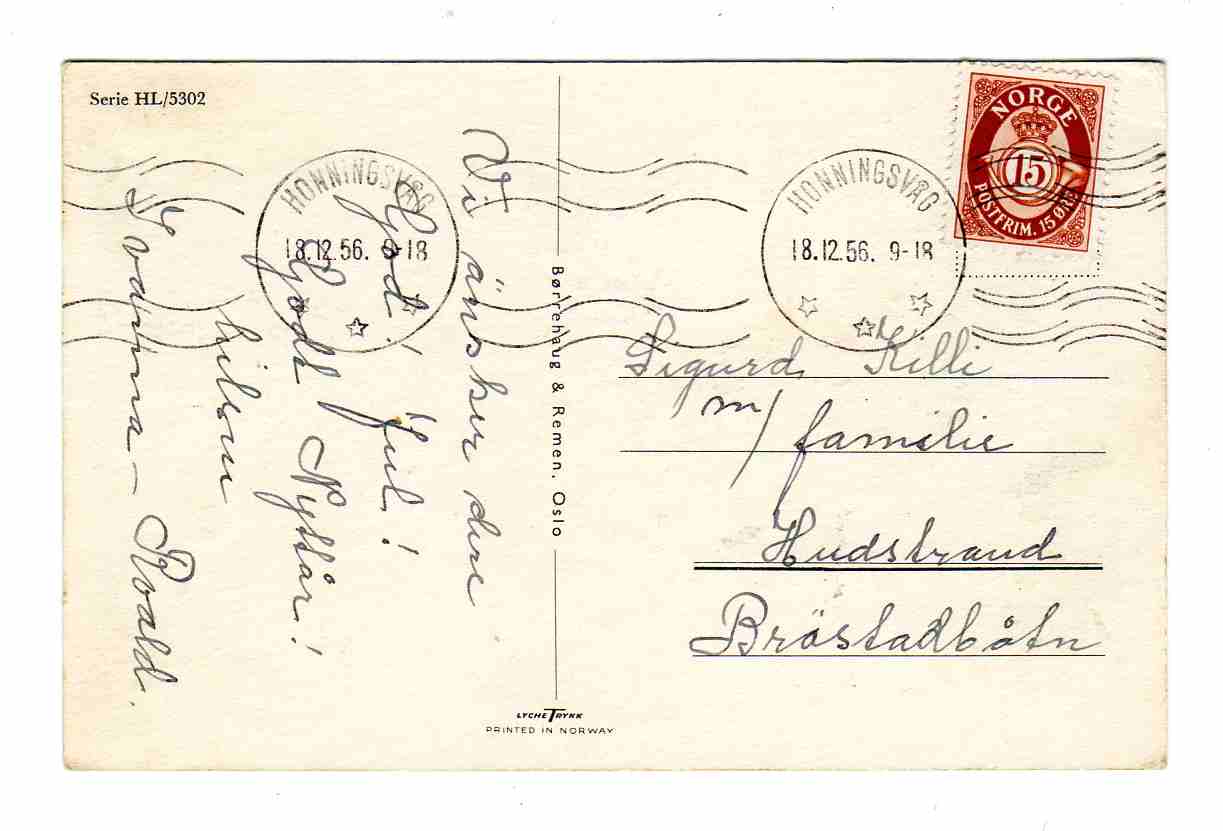 Serie HL/5302
NORGE
15
POSTFRIM. 15 ØRE
HONNINGSVÅG
18.12.56. 9-18
HONNINGSVÅG
18.12.56. 9-18
Vi änsker dere
God! Jul!
Godt Nyttår!
hilsen
Rvald.
Børrehaug & Remen, Oslo
Sigurd Killi
m/ familie
Hudstrand
Bröstadbåtn
LYCHE TRYKK
PRINTED IN NORWAY